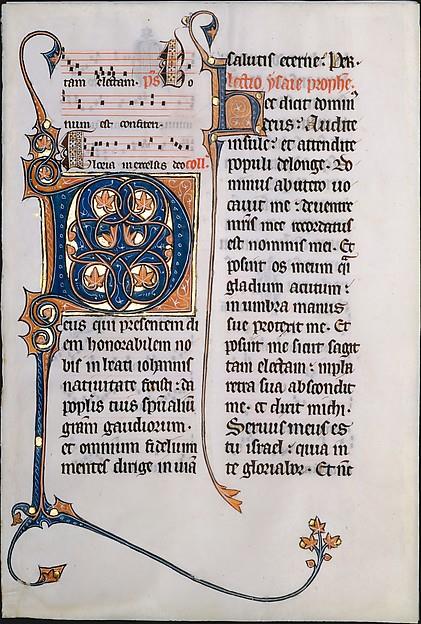 tam electam. ps Bo
num est confiteri.
Gloria in excelsis deo coll.
Deus qui presentem di
em honorabilem no
bis in beati iohannis
natiuitate fecisti: da
populis tuis spualiu
gram gaudiorum.
et omnium fidelium
mentes dirige in uia
salutis eterne. Per.
lectio ysaie prophe.
Hec dicit domin
deus: Audite
insule: et attendite
populi de longe. Do
minus ab utero uo
cauit me: de uentre
mris mee recordatus
est nominis mei. Et
posuit os meum qi
gladium acutum:
in umbra manus
sue protexit me. Et
posuit me sicut sagit
tam electam: in pha
retra sua abscondit
me. et dixit michi.
Seruus meus es
tu israel: quia in
te gloriabor. Et nc